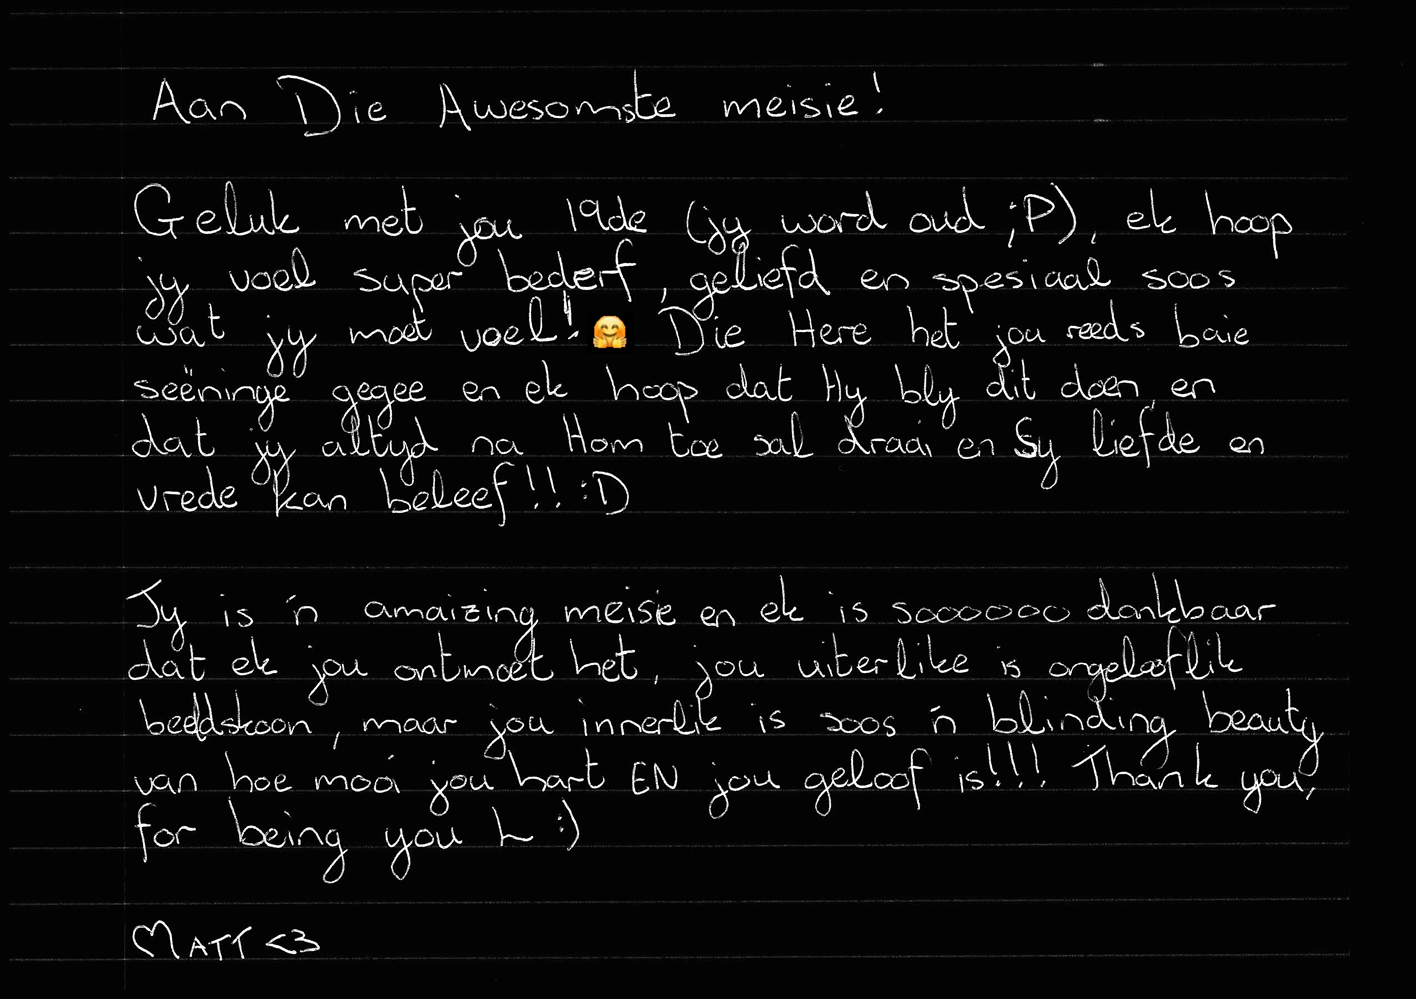 Aan Die Awesomste meisie!
Geluk met jou 19de (jy word oud ;P), ek hoop
jy voel super bederf, geliefd en spesiaal soos
wat jy moet voel! 🤗 Die Here het jou reeds baie
seëninge gegee en ek hoop dat Hy bly dit doen, en
dat jy altyd na Hom toe sal draai en Sy liefde en
vrede kan beleef!! :D
Jy is 'n amaizing meisie en ek is soooooo dankbaar
dat ek jou ontmoet het, jou uiterlike is ongelooflik
beeldskoon, maar jou innerlik is soos 'n blinding beauty
van hoe mooi jou hart EN jou geloof is!!! Thank you,
for being you L :)
MATT <3